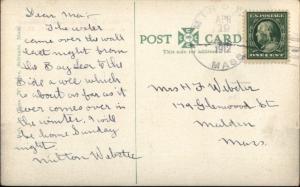 Dear Ma,
The water
came over the wall
last night from
the Bay
side a well which is
about as far as it
ever comes over in
the winter. I will
be home Sunday
night.
Milton Webster
POST CARD
APR
1912
MASS
ONE CENT
Mrs H F Webster
179 Glenwood St
Malden
Mass.